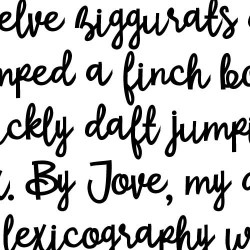 elve ziggurats
mped a finch bo
ckly daft jumpi
. By Jove, my
lexicography w